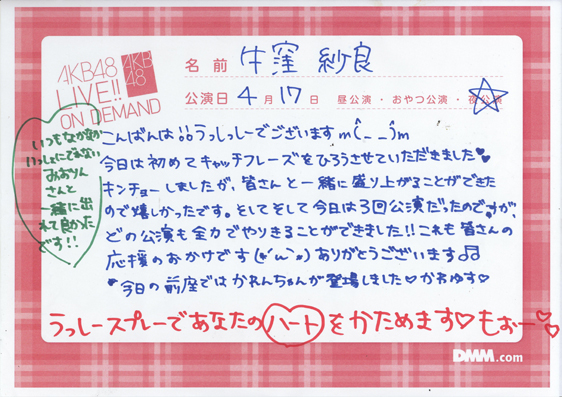 AKB48
LIVE!!
ON DEMAND
AKB
48
名前 牛窪 紗良
公演日 4月17日 昼公演・おやつ公演・夜公演
いつもなかなか
いっしょにでれない
みおりん
さんと
一緒に出
れて良かった
です!!
こんばんは!!うっしっしーでございますm(_ _)m
今日は初めてキャッチフレーズをひろうさせていただきました♥
キンチョーしましたが、皆さんと一緒に盛り上がることができた
ので嬉しかったです。そしてそして今日は3回公演だったのですが、
どの公演も全力でやりきることができました!!これも皆さんの
応援のおかげです(*'ω'*)ありがとうございます♫
今日の前座ではかれんちゃんが登場しました♡かわゆす♡
うっしースプレーであなたのハートをかためます♡もぉー
DMM.com